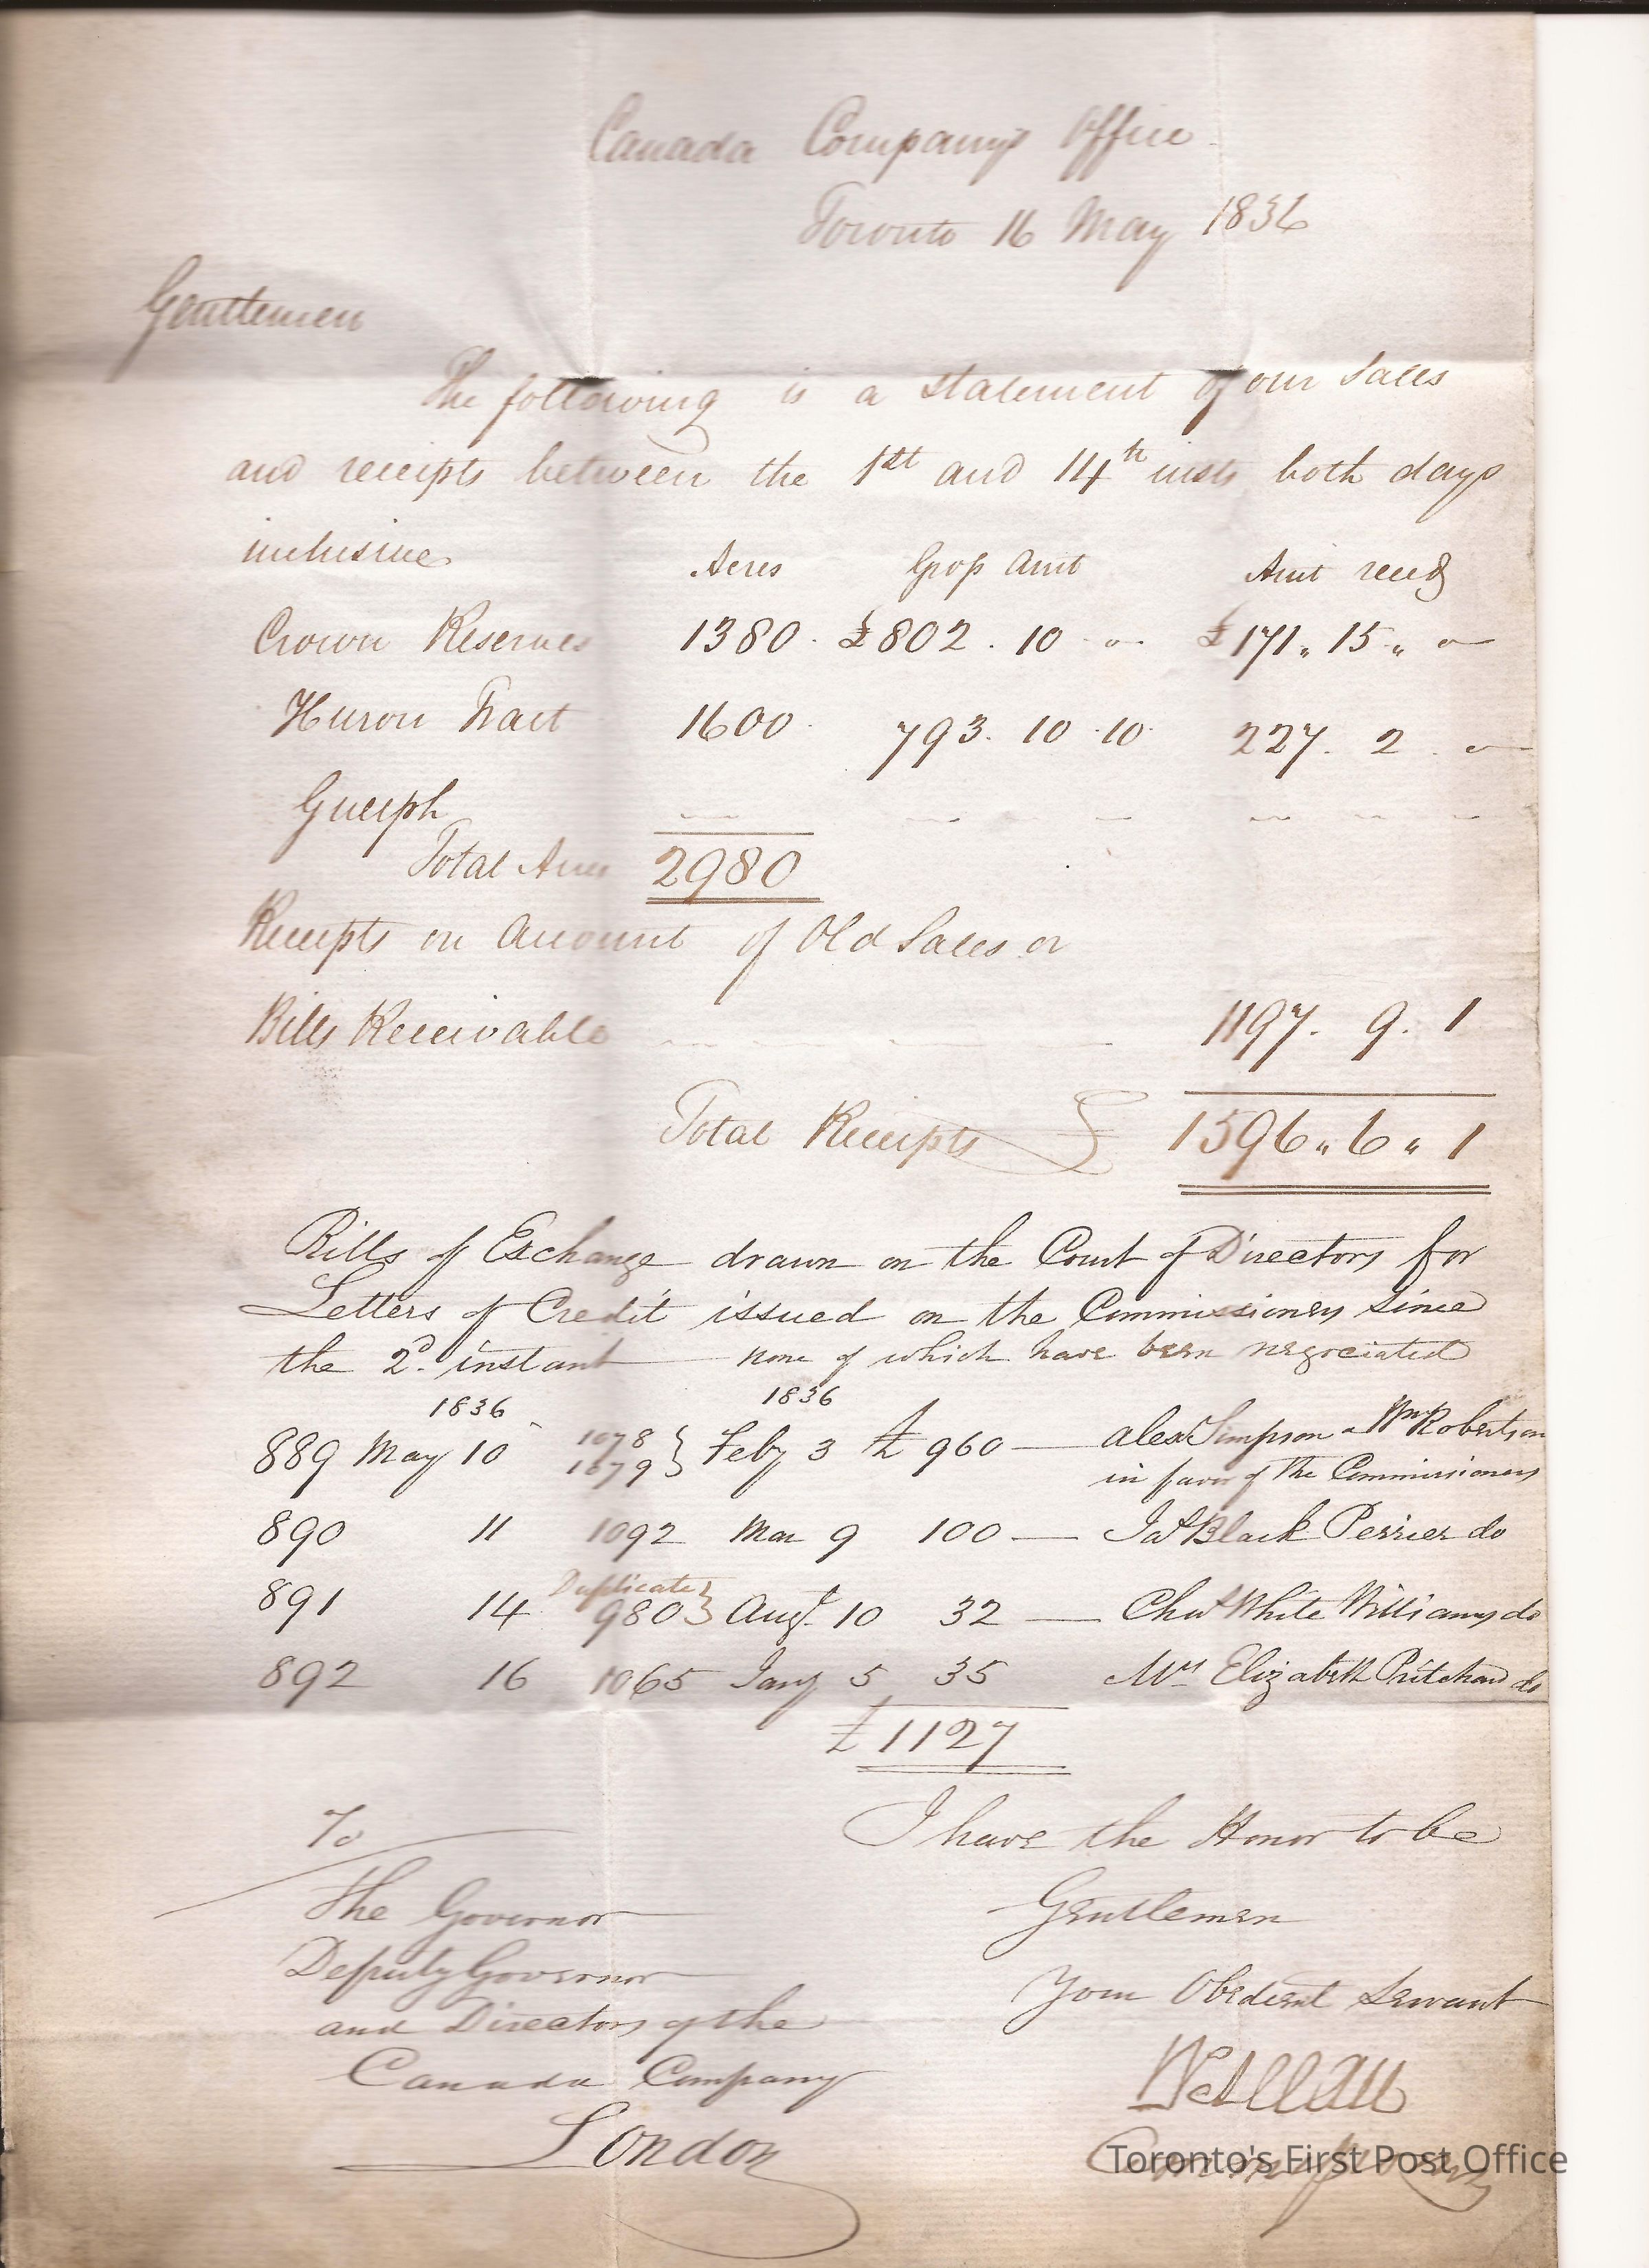 Canada Company's Office
Toronto 16 May 1836
Gentlemen
The following is a statement of our Sales
and receipts between the 1st and 14th insts both days
inclusive
Acres Gross Amt Amt recd
Crown Reserves 1380 £802. 10 - o £171 „ 15 „ o
Huron Tract 1600 793. 10. 10 227. 2. o
Guelph — — — — — — —
Total Acres 2980
Receipts on Account of Old Sales or
Bills Receivable 1197. 9. 1
Total Receipts £ 1596 „ 6 „ 1
Bills of Exchange drawn on the Court of Directors for
Letters of Credit issued on the Commissioners since
the 2d. instant none of which have been negociated
1836 1836
889 May 10 1078 1079 } Feby 3 £ 960 — Alexr Simpson & Wm Robertson
in favor of The Commissioners
890 11 1092 Mar 9 100 — Jas Black Perrier do
891 14 Duplicate 980 } Augt. 10 32 — Chas White Williams do
892 16 1065 Jany 5 35 Mrs Elizabeth Pritchard do
£1127
To
I have the Honor to be
The Governor
Gentlemen
Deputy Governor
Your Obedient Servant
and Directors of the
Canada Company
London
Toronto's First Post Office